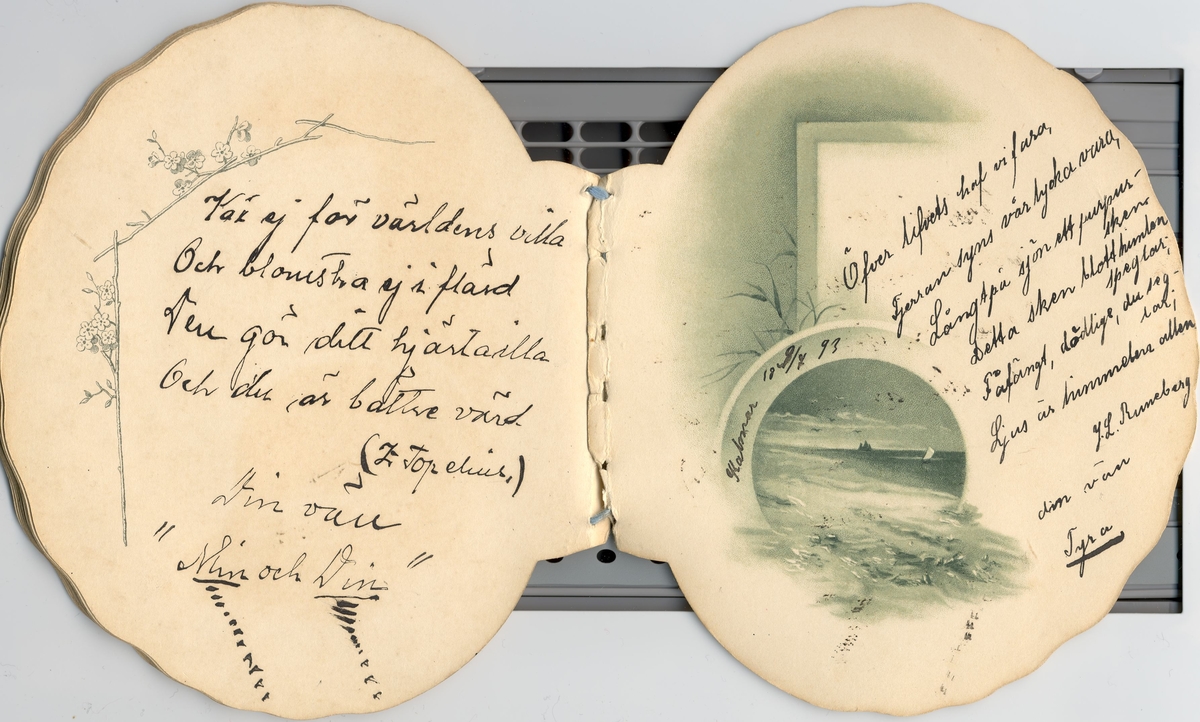 Väx ej för världens villa
Och blomstra ej i flärd
Den gör ditt hjärta illa
Och du är bättre värd
(Z. Topelius.)
Din vän
"Min och Din"
Öfver lifvets haf vi fara,
Fjerran syns vår lycka vara,
Långt på sjön ett purpur-
sken
Detta sken blott himlen
speglar.
Fåfängt, dödlige, du seg-
lar;
Ljus är himmelen allen
J. L. Runeberg
din vän
Tyra
Kalmar 18 9/7 93